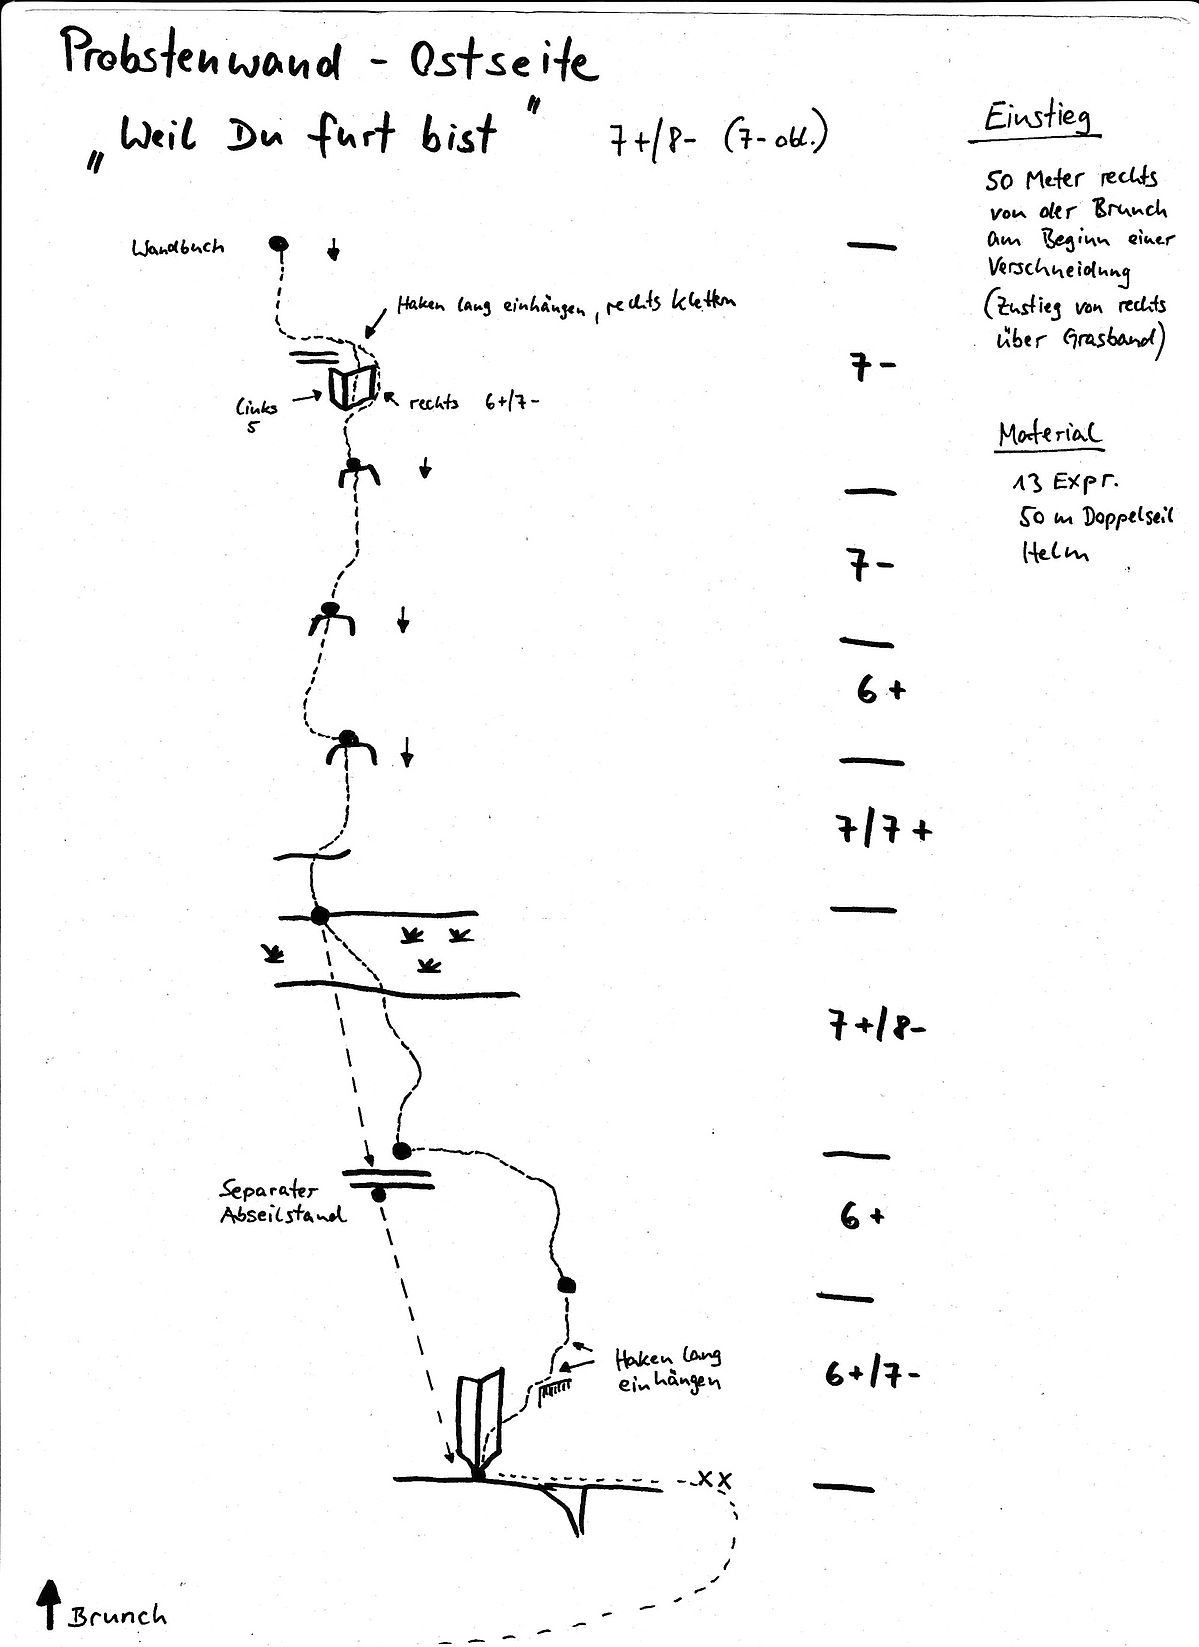 Probstenwand - Ostseite
„Weil Du furt bist" 7+/8- (7- obl.)
Einstieg
50 Meter rechts
von der Brunch
am Beginn einer
Verschneidung
(Zustieg von rechts
über Grasband)
Material
13 Expr.
50 m Doppelseil
Helm
Wandbuch
Haken lang einhängen, rechts klettern
7-
Links
5
rechts 6+/7-
7-
6+
7/7+
7+/8-
Separater
Abseilstand
6+
Haken lang
einhängen
6+/7-
XX
Brunch